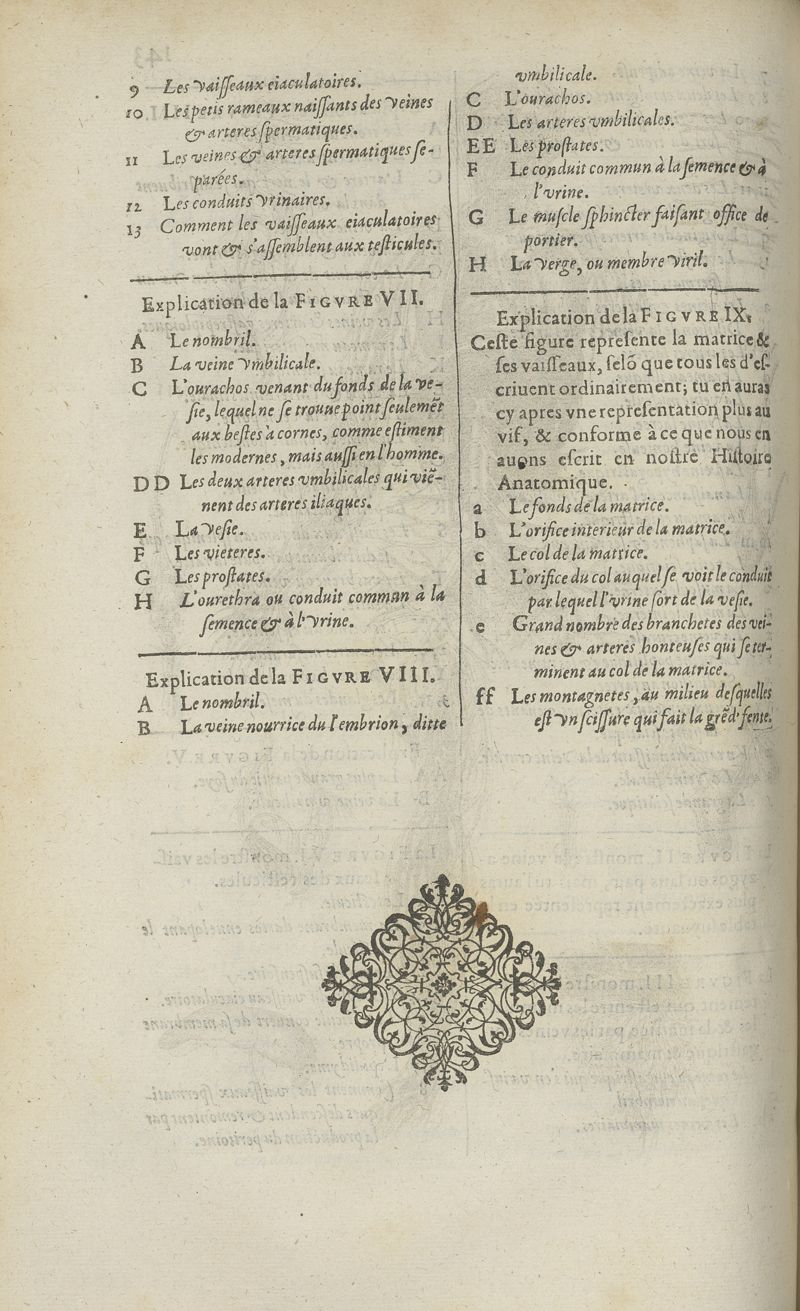 9 Les vaiſſeaux eiaculatoires.
10 Les petis rameaux naiſſants des veines
& arteres ſpermatiques.
11 Les veines & arteres ſpermatiques ſe-
parées.
12 Les conduits vrinaires.
13 Comment les vaiſſeaux eiaculatoires
vont & s'aſſemblent aux teſticules.
Explication de la FIGVRE VII.
A Le nombril.
B La veine vmbilicale.
C L'ourachos venant du fonds de la ve-
ſie, lequel ne ſe trouue point ſeulemēt
aux beſtes a cornes, comme eſtiment
les modernes, mais auſſi en l'homme.
DD Les deux arteres vmbilicales qui viē-
nent des arteres iliaques.
E La veſie.
F Les vieteres.
G Les proſtates.
H L'ourethra ou conduit commun à la
ſemence & à l'vrine.
Explication de la FIGVRE VIII.
A Le nombril.
B La veine nourrice du l'embrion, ditte
vmbilicale.
C L'ourachos.
D Les arteres vmbilicales.
EE Les proſtates.
F Le conduit commun à la ſemence & à
l'vrine.
G Le muſcle ſphincter faiſant office de
portier.
H La verge, ou membre viril.
Explication de la FIGVRE IX.
Ceſte figure repreſente la matrice &
ſes vaiſſeaux, ſelō que tous les d'eſ-
criuent ordinairement; tu en auras
cy apres vne repreſentation plus au
vif, & conforme à ce que nous en
auons eſcrit en noſtre Hiſtoire
Anatomique.
a Le fonds de la matrice.
b L'orifice interieur de la matrice.
c Le col de la matrice.
d L'orifice du col auquel ſe voit le conduit
par lequel l'vrine ſort de la veſie.
e Grand nombre des branchetes des vei-
nes & arteres honteuſes qui ſe ter-
minent au col de la matrice.
ff Les montagnetes, au milieu deſquelles
eſt vn ſciſſure qui fait la grēd' fente.